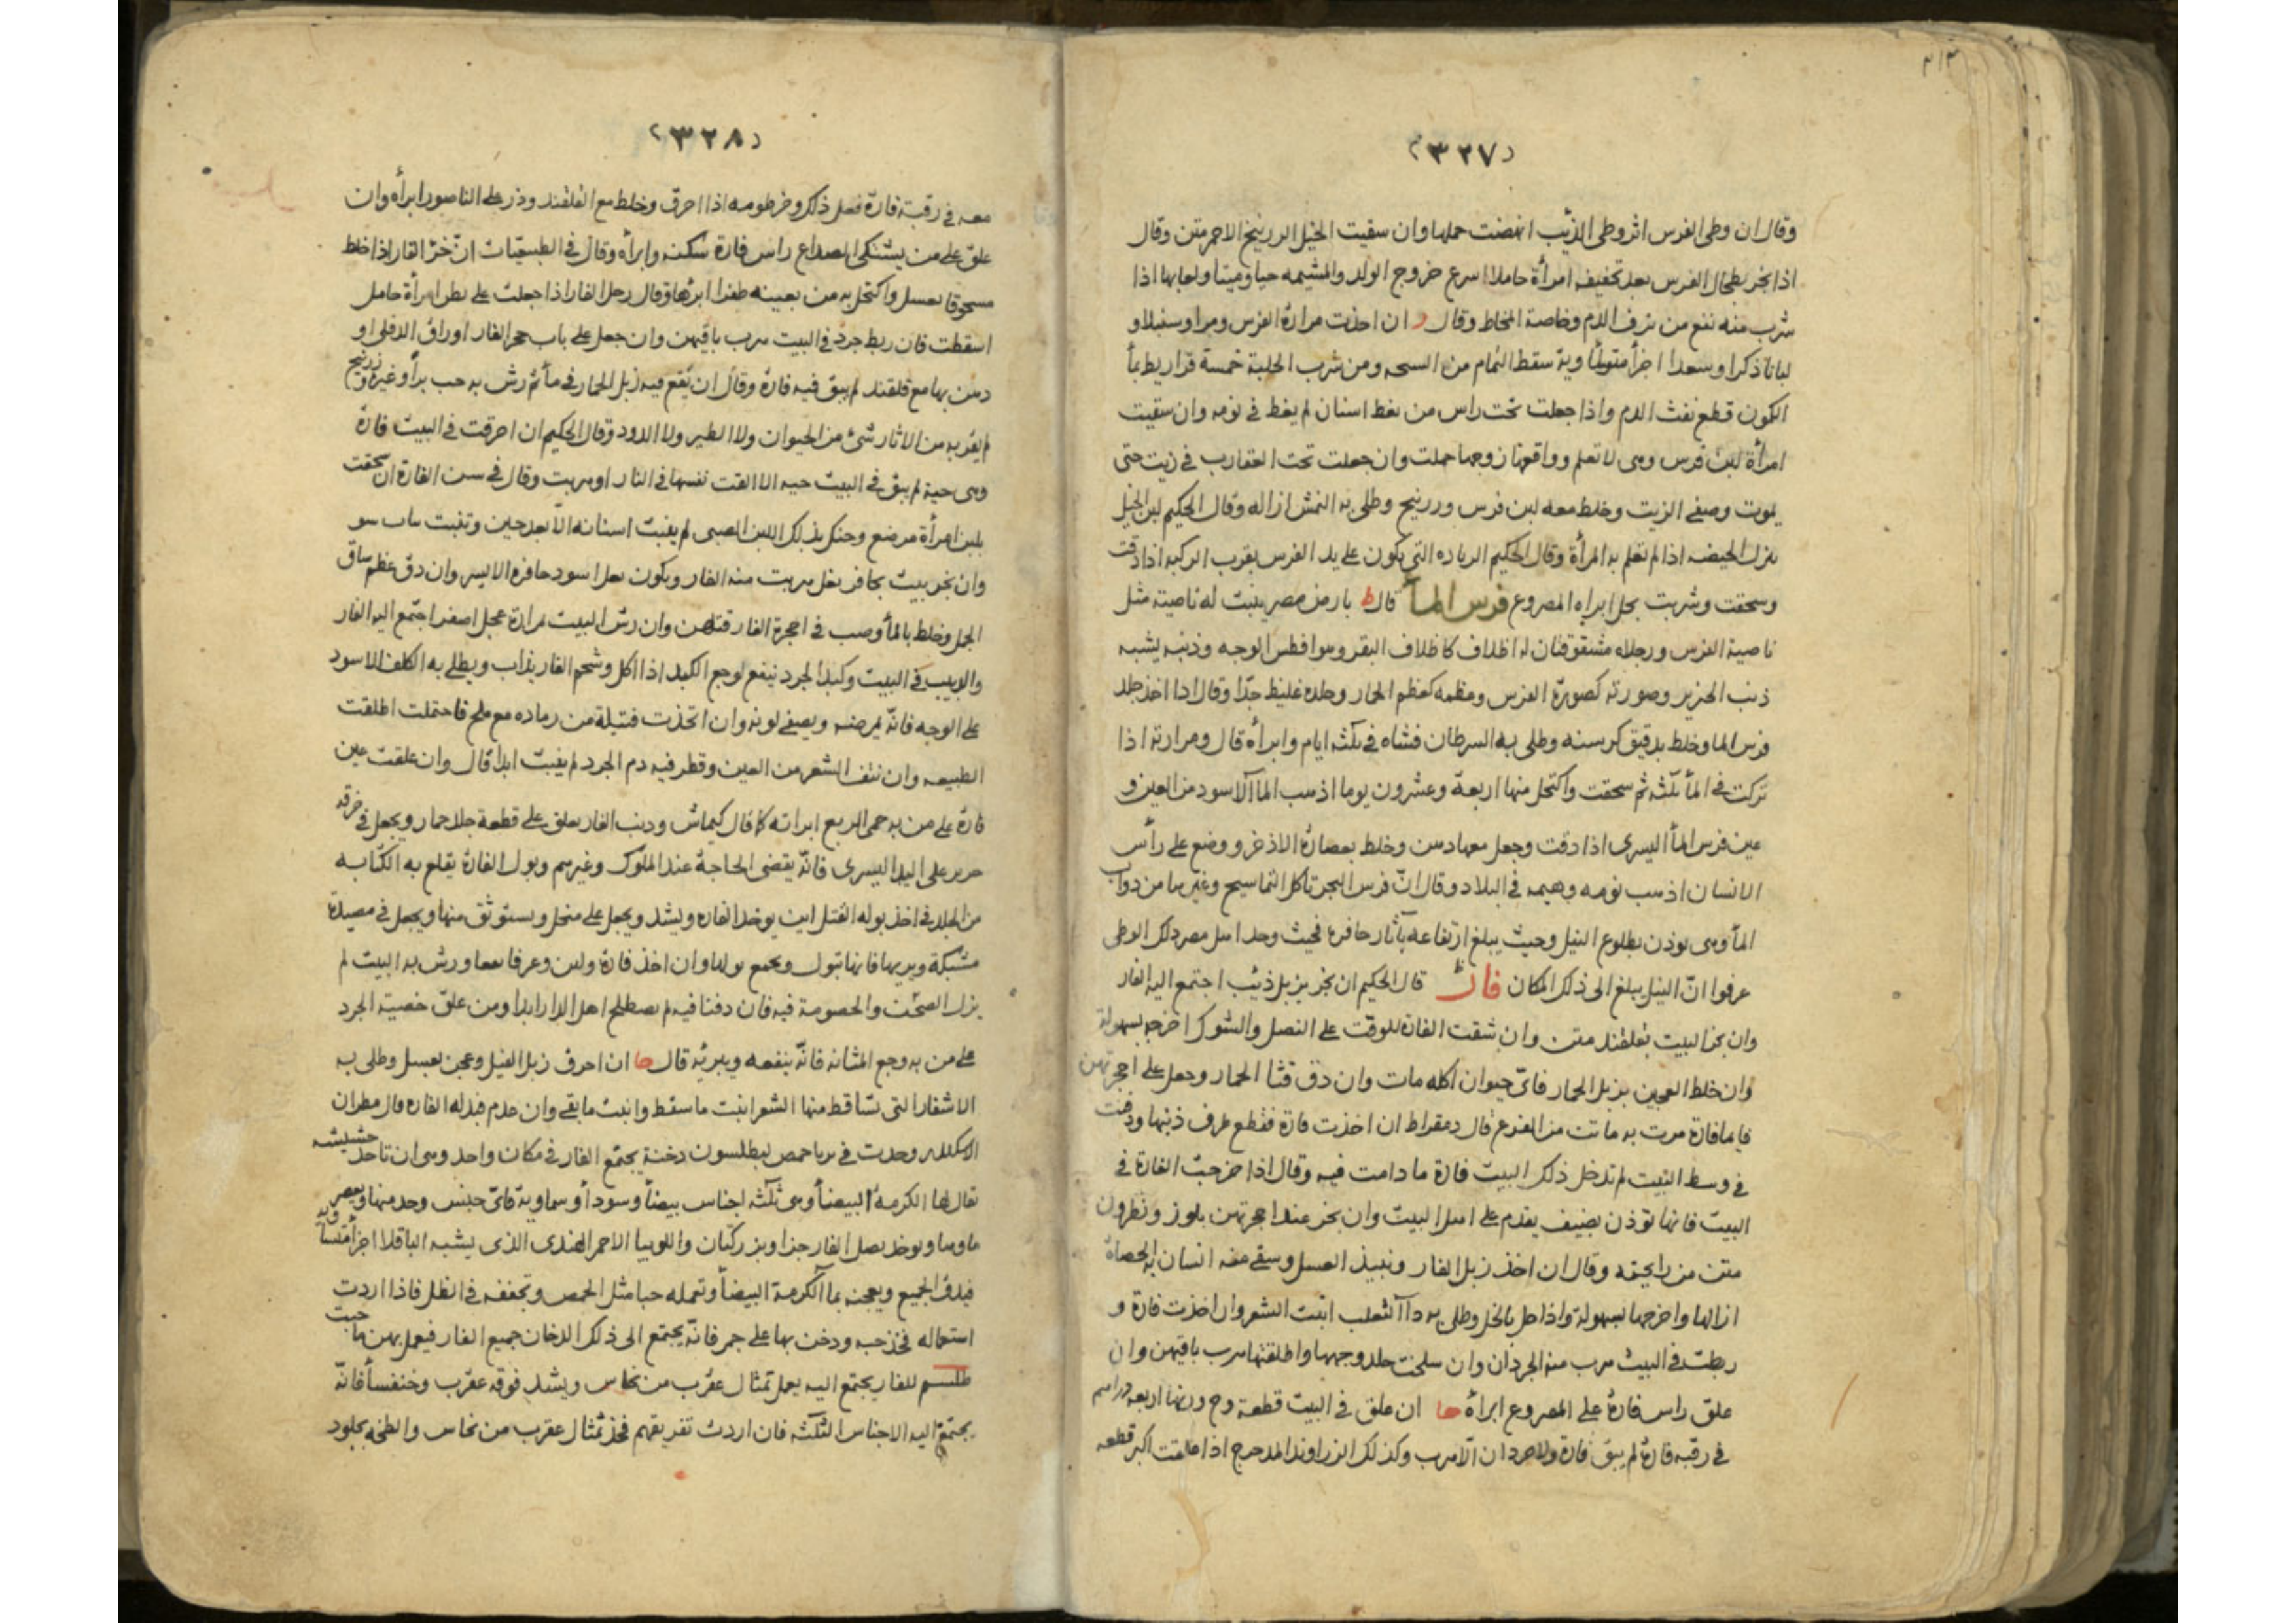 ٣١٣
(٣٢٧)
وقال ان وطى الفرس اثر وطى الذئب انهضت حملها وان سقيت الخيل الزرنيخ الاحمر متن وقال
اذا بخر بطحال الفرس بعد تجفيفه امرأة حاملا اسرع خروج الولد والمشيمه حيا وميتا ولعابها اذا
شرب منه نفع من نزف الدم وخاصة المخاط وقال ر ان اخذت مرارة الفرس ومرا وسنبلا و
لبانا ذكرا وسعدا اجزأ متساوية سقط التمام من السحه ومن شرب الحلبة خمسة قراريط بمأ
الكمون قطع نفث الدم واذا جعلت تحت راس من يغط اسنان لم يغط في نومه وان سقيت
امرأة لبن فرس وهى لا تعلم وواقعها زوجها حملت وان جعلت تحت العقارب في زيت حتى
يموت وصفى الزيت وخلط معه لبن فرس وزرنيخ وطلى به النمش ازاله وقال الحكيم لبن الخيل
ينزل الحيضه اذا لم تعلم به المرأة وقال الحكيم الزياده التى يكون على يد الفرس بقرب الركبة اذا دقت
وسحقت وشربت بخل ابراه المصروع فرس المأ قال ط بارض مصر ينبت له ناصية مثل
ناصية الفرس ورجلاه مشقوقتان له اظلاف كاظلاف البقر وهو افطس الوجه وذنبه يشبه
ذنب الخنزير وصورته كصورة الفرس وعظمه كعظم الحمار وجلده غليظ جدّا وقال اذا اخذ جلد
فرس الما وخلط بدقيق كرسنه وطلى به السرطان فشاه في ثلثه ايام وابرأه قال ومرارته اذا
تركت في المأ ثلثه ثم سحقت واكتحل منها اربعة وعشرون يوما اذهب المأ الاسود من العين و
عين فرس المأ اليسرى اذا دقت وجعل معها دهن وخلط بعصارة الاذخر ووضع على رأس
الانسان اذهب نومه وهيمه في البلاد وقال انّ فرس البحر تاكل التماسيح وغيرها من دوابّ
المأ وهى توذن بطلوع النيل وحيث يبلغ ارتفاعه بآثار حافره فحيث وجد اهل مصر ذلك الوطى
عرفوا انّ النيل يبلغ الى ذلك المكان فار قال الحكيم ان بخر بزبل ذئب اجتمع اليه الفار
وان بخر البيت بقلقند متن وان شقت الفارة للوقت على النصل والشوك اخرجه بسهولة
وان خلط العجين بزبل الحمار فاىّ حيوان اكله مات وان دق قثا الحمار وجعل على اجحرتهن
فايما فارة مرت به ماتت من الفزع قال دمقراط ان اخذت فارة فقطع طرف ذنبها ودفنت
في وسط البيت لم تدخل ذلك البيت فارة ما دامت فيه وقال اذا خرجت الفارة في
البيت فانها توذن بضيف يقدم على اهل البيت وان بخر عند اجحرتهن بلوز ونطرون
متن من رايحته وقال ان اخذ زبل الفار ونبيذ العسل وسقى منه انسان به الحصاة
ازالها واخرجها بسهولة واذا حل بالخل وطلى به دآ الثعلب انبت الشعر وان اخذت فارة و
ربطت في البيت هرب منه الجرذان وان سلخت جلد وجهها واطلقتها هرب باقيهن وان
علق راس فارة على المصروع ابرأه حا ان علق في البيت قطعة وج وزنها اربعه دراهم
في رقبه فارة لم يبق فارة ولا جردان الّا هرب وكذلك الزراوند المدحرج اذا علقت اكبر قطعه
(٣٢٨)
معه في رقبة فارة فعل ذلك وخرطومه اذا احرق وخلط مع القلقند وذر على الناصور ابرأه وان
علق على من يشتكى الصداع راس فارة سكنه وابرأه وقال في الطبيعيّات انّ خرء الفار اذا خلط
مسحوقا بعسل واكتحل به من بعينه ظفرا ابرئها وقال رجل الفار اذا جعلت على بطن امرأة حامل
اسقطت فان ربط جرد في البيت هرب باقيهن وان جعل على باب جحر الفار اوراق الدفلى او
دهن بها مع قلقند لم يبق فيه فارة وقال ان يقع فيه زبل الحمار في مأ ثم رش به حب برأ وغيره وزرنيخ
لم يقربه من الاثار شئ من الحيوان ولا الطير ولا الدود وقال الحكيم ان احرقت في البيت فارة
وهى حية لم يبق في البيت حيه الا القت نفسها في النار او هربت وقال في سن الفارة ان سحقت
بلبن امرأة مرضع وحنك بذلك اللبن الصبى لم ينبت اسنانه الّا بعد حين وتنبت
وان بخر بيت بحافر بغل هربت منه الفار ويكون بغل اسود حافره الايسر وان دق عظم ساق
الجمل وخلط بالمأ وصب في اجحرة الفار قتلهن وان رش البيت بمرارة عجل اصفر اجتمع اليه الفار
والدبيب في البيت وكبد الجرد ينفع لوجع الكبد اذا اكل وشحم الفار يذاب ويطلى به الكلف الاسود
على الوجه فانّه يمرضه ويصفى لونه وان اتخذت فتيلة من رماده مع ملح فاحتملت اطلقت
الطبيعه وان نتف الشعر من العين وقطر فيه دم الجرد لم ينبت ابدا قال وان علقت عين
فارة على من به حمى الربع ابراته كما قال كيماش وذنب الفار يعلق على قطعة جلد حمار ويجعل في خرقه
حرير على اليد اليسرى فانّه يقضى الحاجة عند الملوك وغيرهم وبول الفارة يقلع به الكتابه
من الجلد في اخذ بوله الفتل اين يوخذ الفاره ويشد ويجعل على منخل ويستوثق منها ويجعل في مصيدة
مشبكة ويريها فانها تبول ويجمع بولها وان اخذ فارة ولبن وعرفا معا ورش به البيت لم
يزل الصخت والخصومة فيه فان دفنا فيه لم يصطلح اهل الدار ابدا ومن علق خصية الجرد
على من به وجع المثانه فانّه ينفعه ويبريه قال حا ان احرق زبل الفيل وعجن بعسل وطلى به
الاشفار التى تساقط منها الشعر انبت ما سقط وانبت ما بقى وان عدم فبدله الفاره قال مطران
وجدت في برباحمص لبطلسون دخنة يجتمع الفار في مكان واحد وهى ان تاخذ حشيشه
يقال لها الكرمة البيضأ وهى ثلثه اجناس بيضأ وسودأ وسماويه فاىّ جنس وجد منها ويعصر
ماوها ويوخذ بصل الفار جزا وبزر كتّان واللوبيا الاحمر الهندى الذى يشبه الباقلا اجزأ متساويه
فيدق الجميع ويعجن بمأ الكرمة البيضأ وتعمله حبا مثل الحمص وتجففه في الظل فاذا اردت
استعماله فخذ حبه ودخن بها على جمر فانّه يجتمع الى ذلك الدخان جميع الفار فيعمل بهن ما حبت
طلسم للفار يجتمع اليه يعمل تمثال عقرب من نحاس ويشد فوقه عقرب وخنفسأ فانّه
يجتمع اليه الاجناس الثلثه فان اردت تفريقهم فخذ تمثال عقرب من نحاس والطخه بجلود